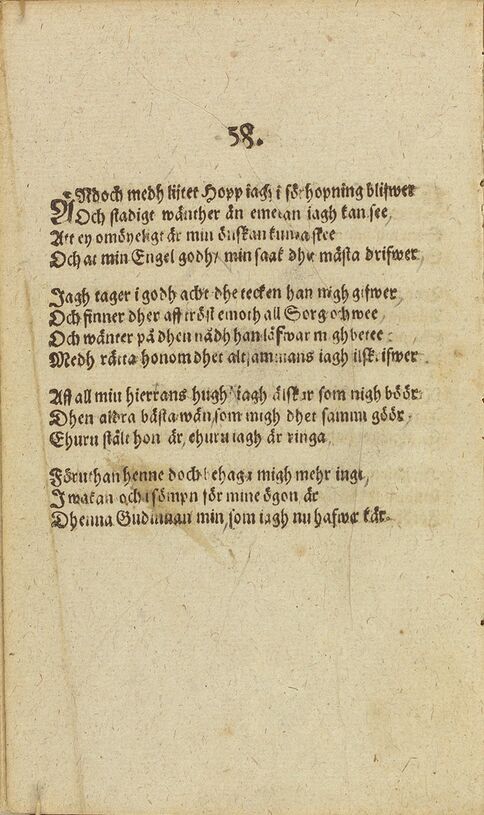 58.
ÄNdoch medh lijtet Hopp iagh i förhopning blifwer
Och stadigt wänther än emedan iagh kan see,
Att ey omöyeligt är min önskan kunna skee
Och at min Engel godh, min saak dhe mästa drifwer,
Jagh tager i godh acht dhe tecken han migh gifwer,
Och finner dher aff tröst emoth all Sorg och wee
Och wänter på dhen nådh han läfwar migh betee
Medh rätta honom dhet altsammans iagh
Aff all min hierrans hugh iagh älskar som migh böör
Dhen aldra bästa wän, som migh dhet samma göör,
Ehuru stält hon är, ehuru iagh är ringa
Föruthan henne doch behagar migh mehr inge,
I wakan och i sömpn för mine ögon är
Dhenna Gudinnan min, som iagh nu hafwer kär.